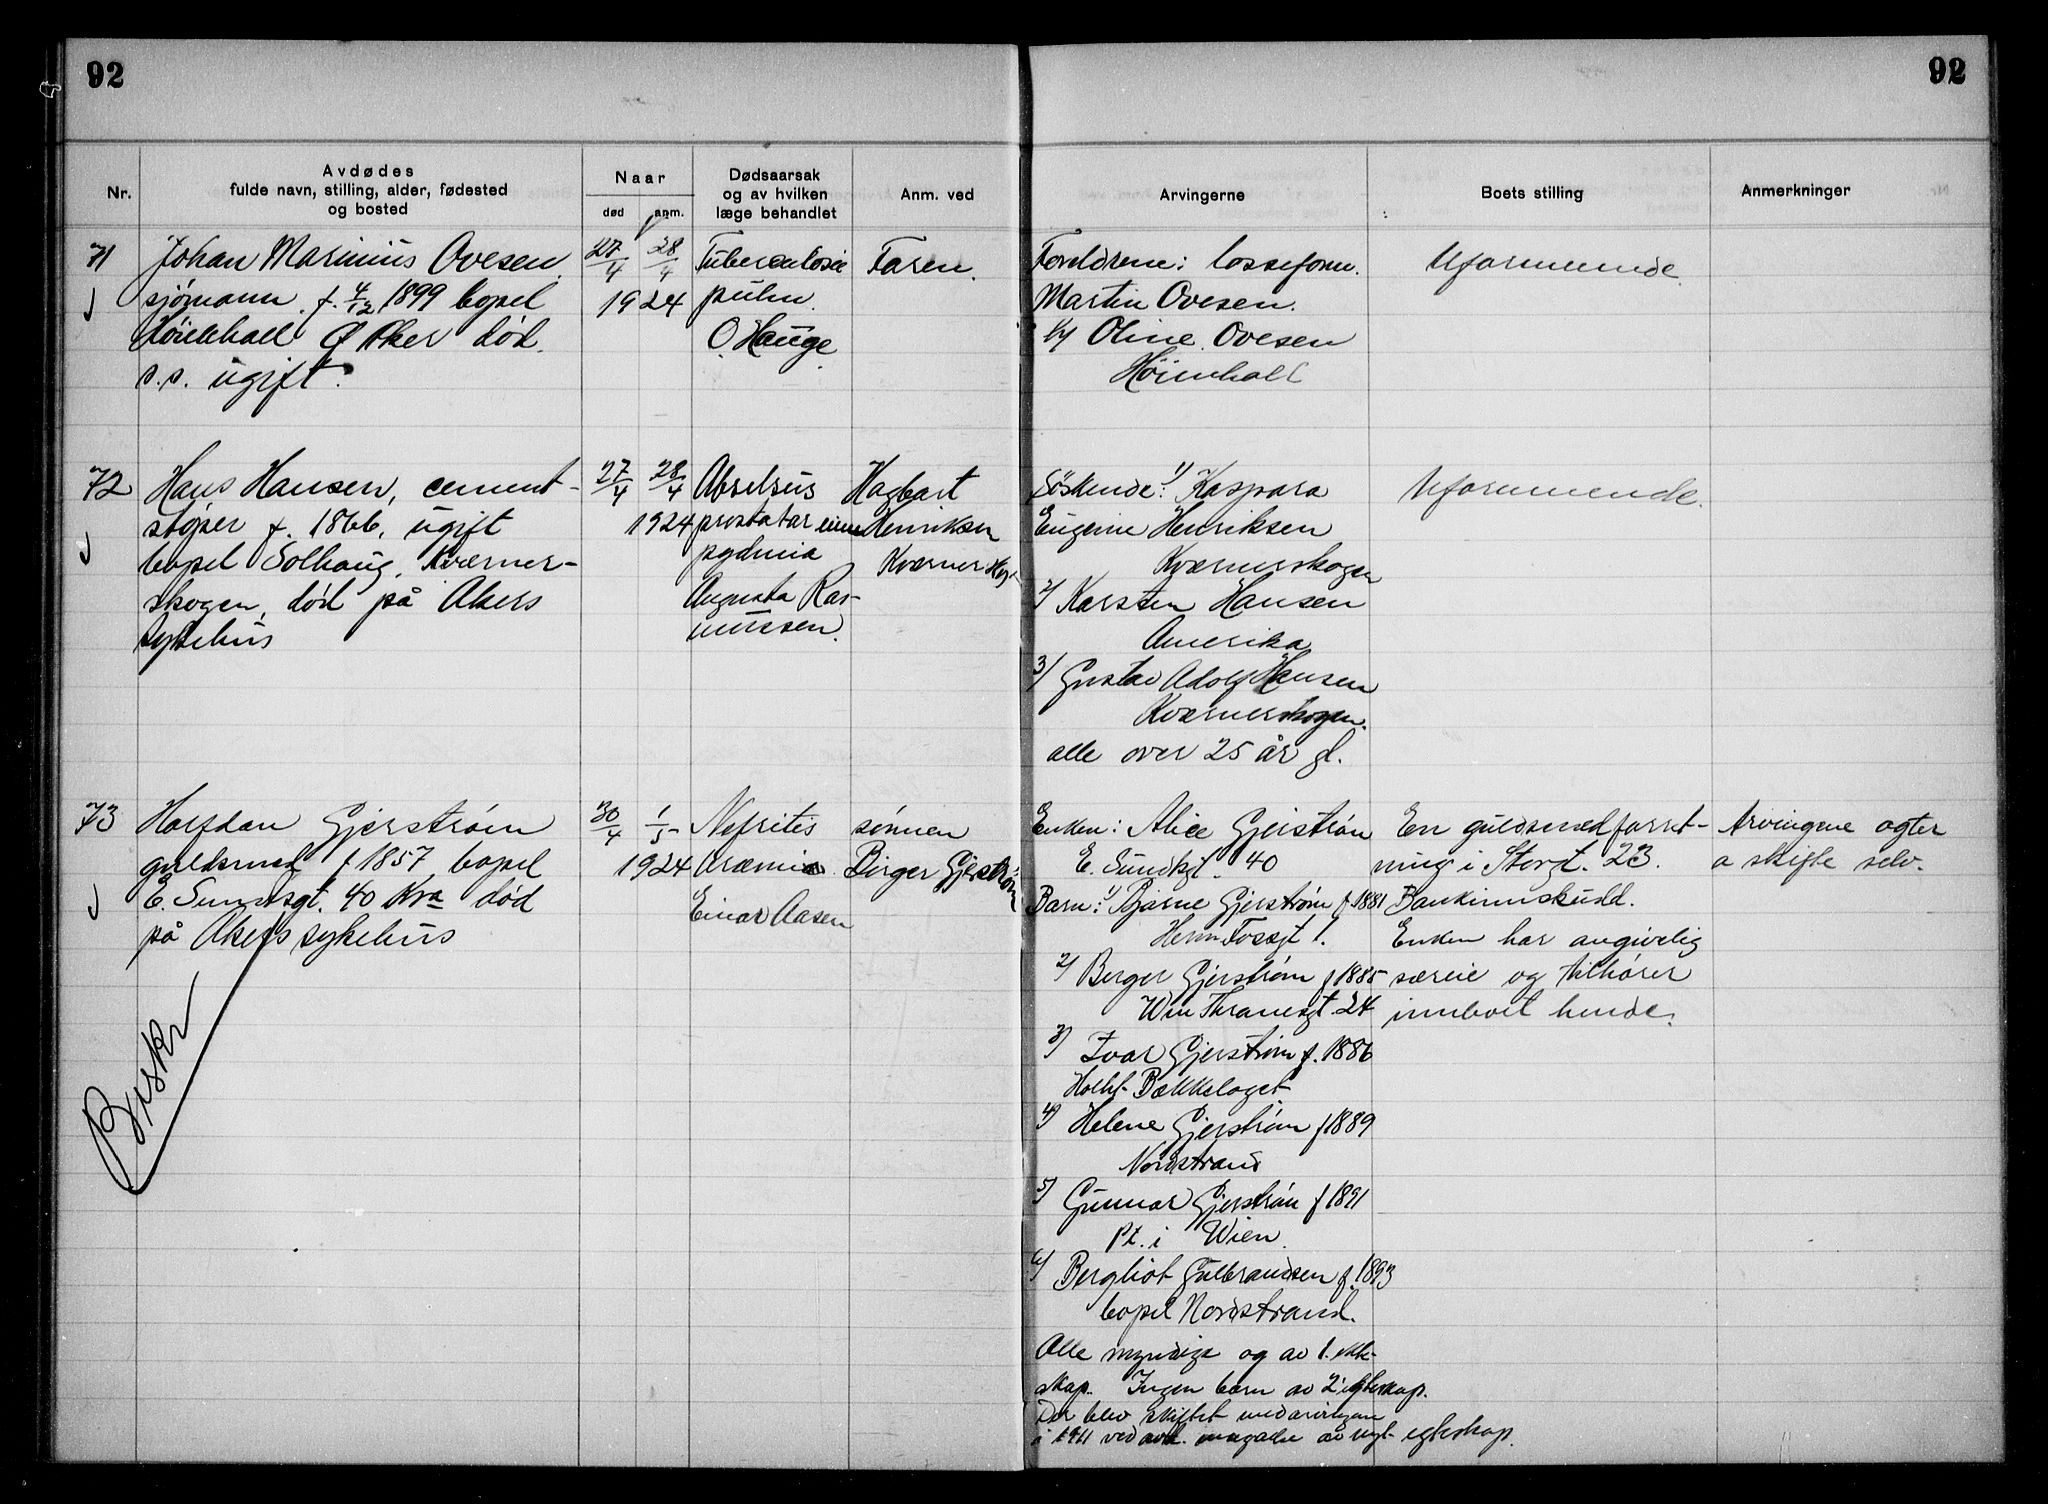 92
92
Nr.
Avdødes
fulde navn, stilling, alder, fødested
og bosted
Naar
død
anm.
Dødsaarsak
og av hvilken
læge behandlet
Anm. ved
Arvingerne
Boets stilling
Anmerkninger
71
Johan Marinius Ovesen
sjömann f. 4/12 1899 bopel
Ø Aker død
s.s. ugift.
27/4 28/4
1924
Tuberculosis
pulm.
O. Hauge
Faren.
Foreldrene: losseform.
Martin Ovesen.
Oline Ovesen
Höienhall
Uformuende
72
Hans Hansen, cement-
støper f. 1866, ugift
bopel Solhaug, Kværner-
skogen, død på Akers
sykehus
27/4 28/4
1924
prostatae
Augusta Ras-
mussen.
Hagbart
Henriksen
Søskende: 1) Kaspara
Eugenie Henriksen
Kværnerskogen
2) Karsten Hansen
Amerika
3) Gustav Adolf Hansen
Kværnerskogen.
alle over 25 år gl.
Uformuende.
73
Halfdan Gjerstrøm
guldsmed f 1857 bopel
E. Sundtsgt. 40 Kra død
på Akers sykehus
30/4 1/5
1924
Nefritis
Uræmia
Einar Aasen
sønnen
Birger Gjerstrøm
Enken: Alice Gjerstrøm
E. Sundtsgt. 40
Barn: 1) Bjarne Gjerstrøm f. 1881
Herm Fossgt 1.
2) Berger Gjerstrøm f 1885
Wm Thranesgt 24
3) Ivar Gjerstrøm f. 1886
Bækkelaget
4) Helene Gjerstrøm f 1889
Nordstrand
5) Gunnar Gjerstrøm f 1891
Pt. i Wien
6) Bergliot Gulbrandsen f. 1893
bopel Nordstrand.
Alle myndige og av 1. ekte-
skap. Ingen barn av 2' egteskap.
Der blev skiftet med arvingene
i 1911 ved indgåelse av nyt egteskap.
En guldsmedforret-
ning i Storgt. 23.
Bankinnskudd.
Enken har angivelig
særeie og tilhører
innboet hende.
Arvingene agter
a skifte selv.